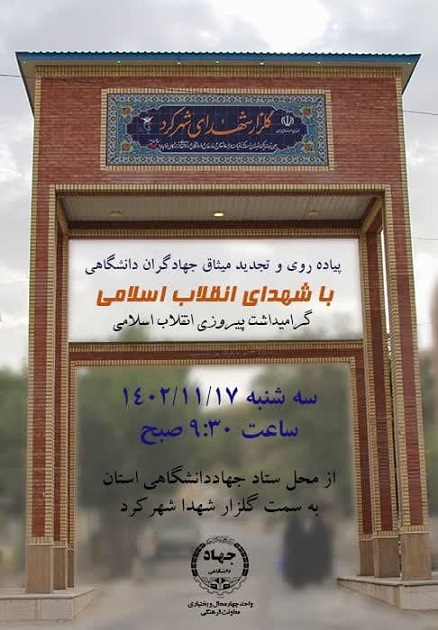 گلزار شهدای شهرکرد
پیاده روی و تجدید میثاق جهادگران دانشگاهی
با شهدای انقلاب اسلامی
گرامیداشت پیروزی انقلاب اسلامی
سه شنبه ۱۴۰۲/۱۱/۱۷
ساعت ۹:۳۰ صبح
از محل ستاد جهاددانشگاهی استان
به سمت گلزار شهدا شهرکرد
جهاد
دانشگاهی
واحد چهارمحال و بختیاری
معاونت فرهنگی